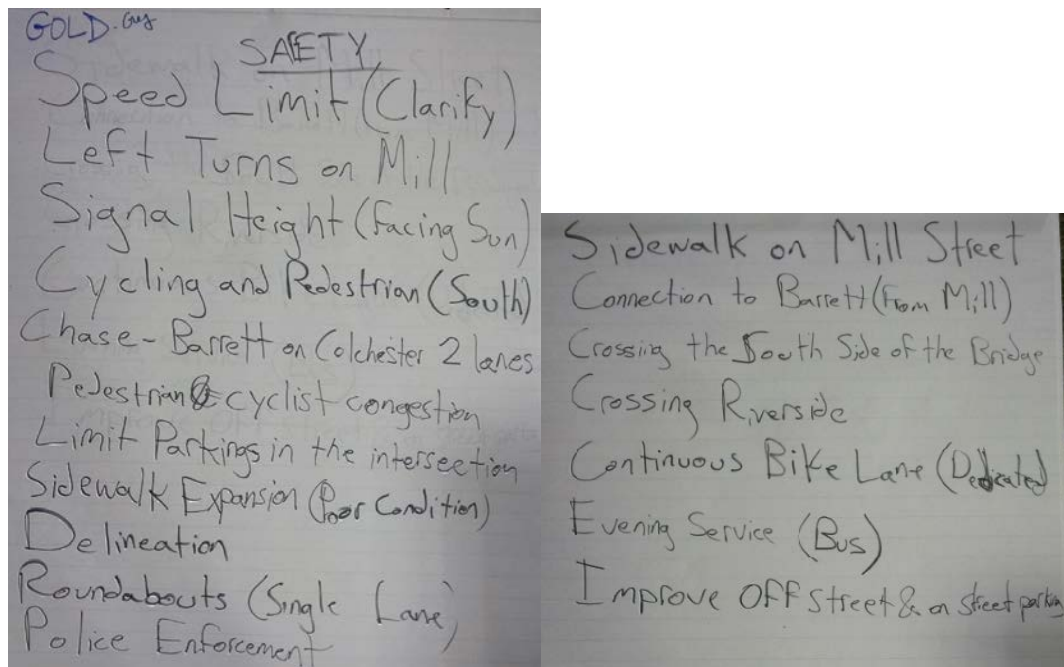 GOLD. Guy
SAFETY
Speed Limit (Clarify)
Left Turns on Mill
Signal Height (Facing Sun)
Cycling and Pedestrian (South)
Chase-Barrett on Colchester 2 lanes
Pedestrian & cyclist congestion
Limit Parkings in the intersection
Sidewalk Expansion (Poor Condition)
Delineation
Roundabouts (Single Lane)
Police Enforcement
Sidewalk on Mill Street
Connection to Barrett (From Mill)
Crossing the South Side of the Bridge
Crossing Riverside
Continuous Bike Lane (Dedicated
Evening Service (Bus)
Improve Off street & on street parking